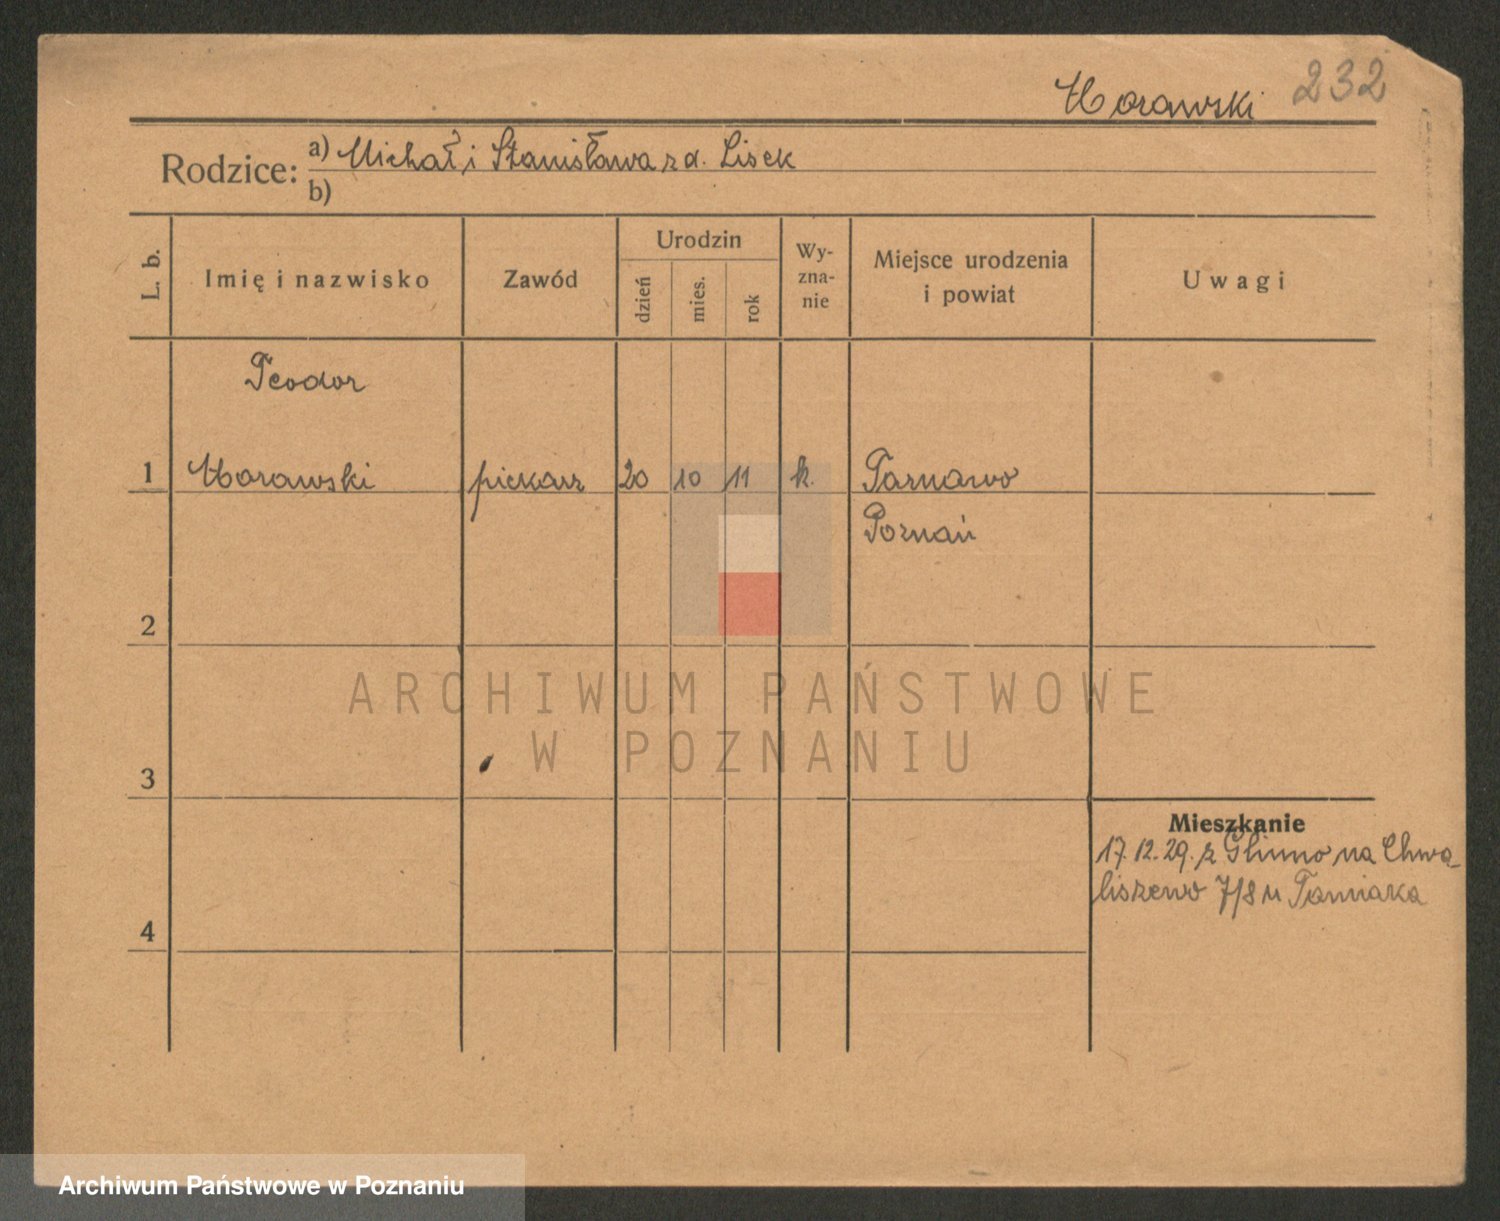 Morawski 232
Rodzice: a) Michał i Stanisława z d. Lisek
b)
L. b.
Imię i nazwisko
Zawód
Urodzin
dzień
mies.
rok
Wy-
zna-
nie
Miejsce urodzenia
i powiat
Uwagi
Teodor
1 Morawski piekarz 20 10 11 k. Tarnowo
Poznań
2
ARCHIWUM PAŃSTWOWE
W POZNANIU
3
Mieszkanie
17.12.29. z Glinno na Chwa-
liszewo 7/8 u
4
Archiwum Państwowe w Poznaniu